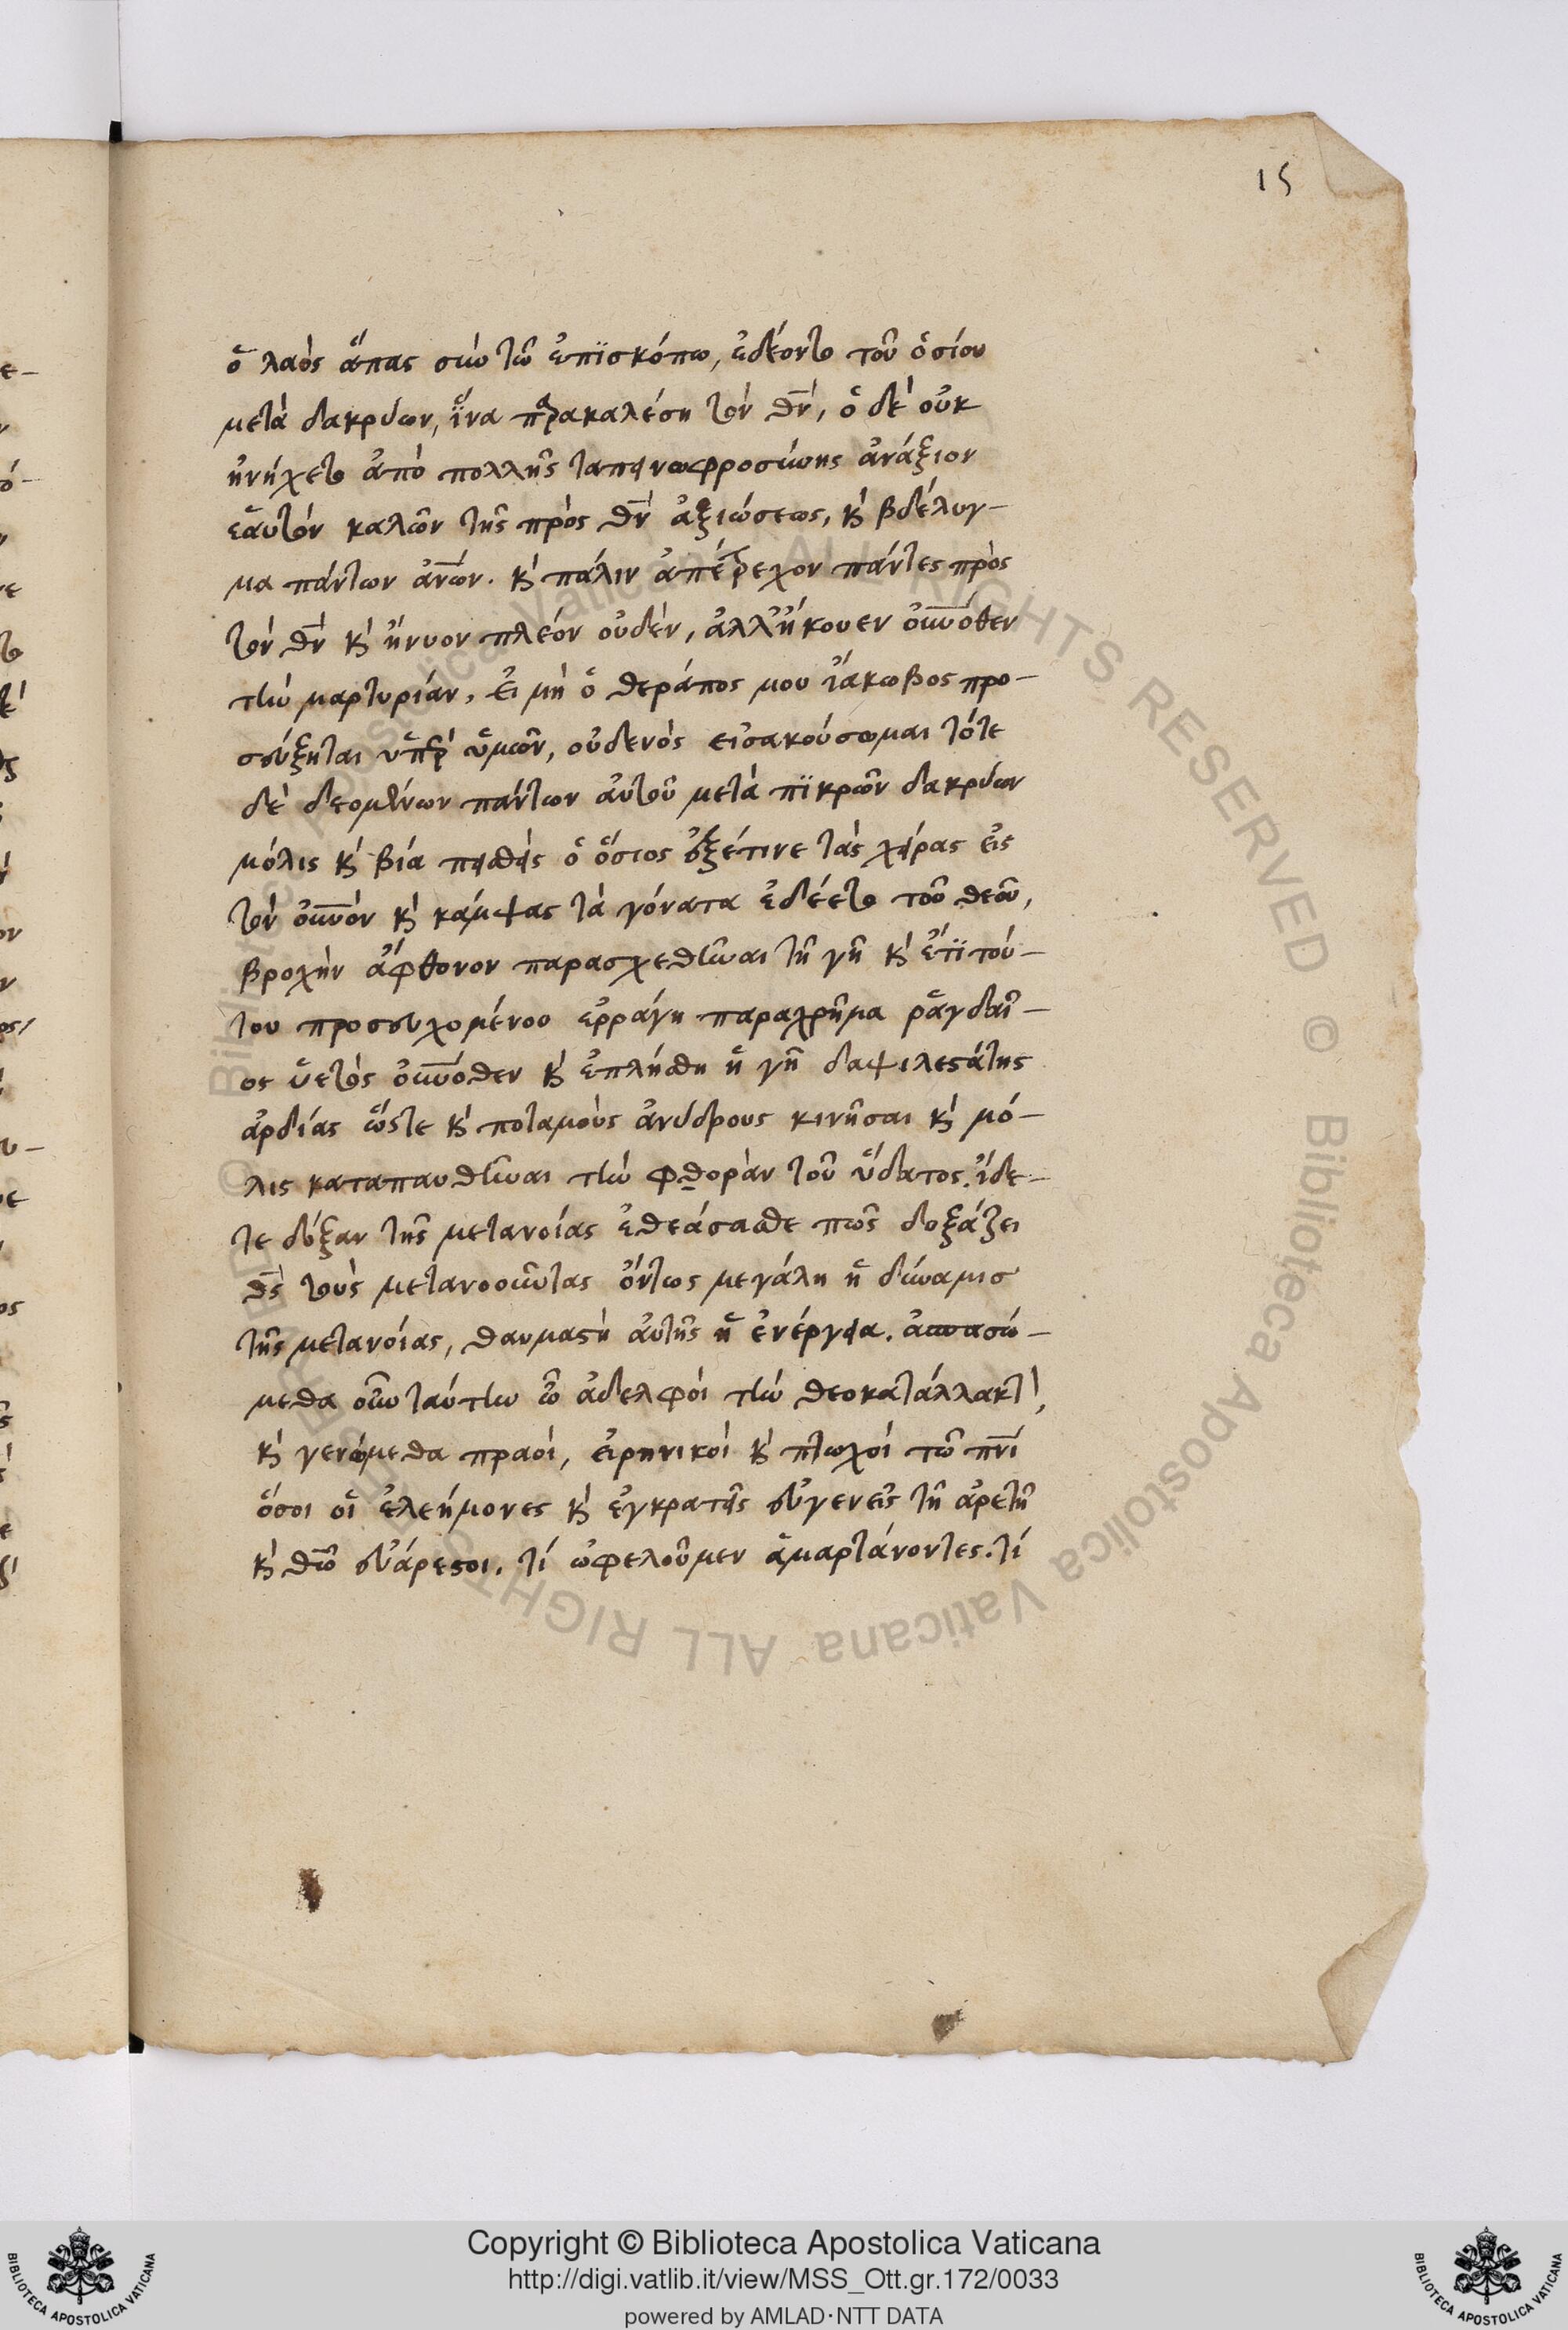 15
ὁ λαὸς ἅπας σὺν τῶ ἐπϊσκόπω, ἐδέοντο τοῦ ὁσίου
μετὰ δακρύων, ἵ̈να παρακαλέση τὸν θν̅, ὁ δὲ οὐκ
ἠνήχετο ἀπὸ πολλῆς ταπεινωφροσύνης ἀνάξιον
ἑαυτὸν καλῶν τῆς πρὸς θν̅ ἀξιώσεως, κ̀ βδέλυγ-
μα πάντων ἀν̅ων. κ̀ πάλιν ἀπέτρεχον πάντες πρὸς
τὸν θν̅ κ̀ ἤνυον πλέον οὐδὲν, ἀλλἤκουεν οὐν̅όθεν
τὴν μαρτυρίαν, εἰ μὴ ὁ θεράπος μου ἰάκωβος προ-
σεύξηται ὑπὲρ ὑμῶν, οὐδενὸς εἰσακούσωμαι τότε
δὲ δεομένων πάντων αὐτοῦ μετὰ πϊκρῶν δακρύων
μόλις κ̀ βία πεισθεὶς ὁ ὅσιος ἐξέτινε τὰς χεῖρας εἰς
τὸν οὐν̅ὸν κ̀ κάμψας τὰ γόνατα ἐδέετο τοῦ θεοῦ,
βροχὴν ἄφθονον παρασχεθῆναι τῆ γῆ κ̀ ἔτϊ τού-
του προσευχομένου ἐρράγη παραχρῆμα ῥαγδαῖ-
ος ὑετὸς οὐν̅όθεν κ̀ ἐπλήσθη ἡ γῆ δαψιλεστάτης
ἀρδίας ὥστε κ̀ ποταμοὺς ἀνύδρους κινῆσαι κ̀ μό-
λις καταπαυθῆναι τὴν φθορὰν τοῦ ὕδατος. ἴδε-
τε δόξαν τῆς μετανοίας ἐθεάσασθε πῶς δοξάζει
θς̅ τοὺς μετανοοῦντας ὄντως μεγάλη ἡ δύναμισ
τῆς μετανοίας, θαυμαστὴ αὐτῆς ἡ ἐνέργεια. ἀσπασώ-
μεθα οὖν ταύτην ὦ ἀδελφοὶ τὴν θεοκατάλλακτ̀,
κ̀ γενώμεθα πραοὶ, εἰρηνικοὶ κ̀ πτωχοὶ τῶ πν̅ι
ὅσοι οἱ ἐλεήμονες κ̀ ἐγκρατεῖς εὐγενεῖς τῆ ἀρετῆ
κ̀ θῶ εὐάρεστοι. τί ὠφελοῦμεν ἁμαρτάνοντες. τί
Copyright © Biblioteca Apostolica Vaticana
http://digi.vatlib.it/view/MSS_Ott.gr.172/0033
powered by AMLAD·NTT DATA